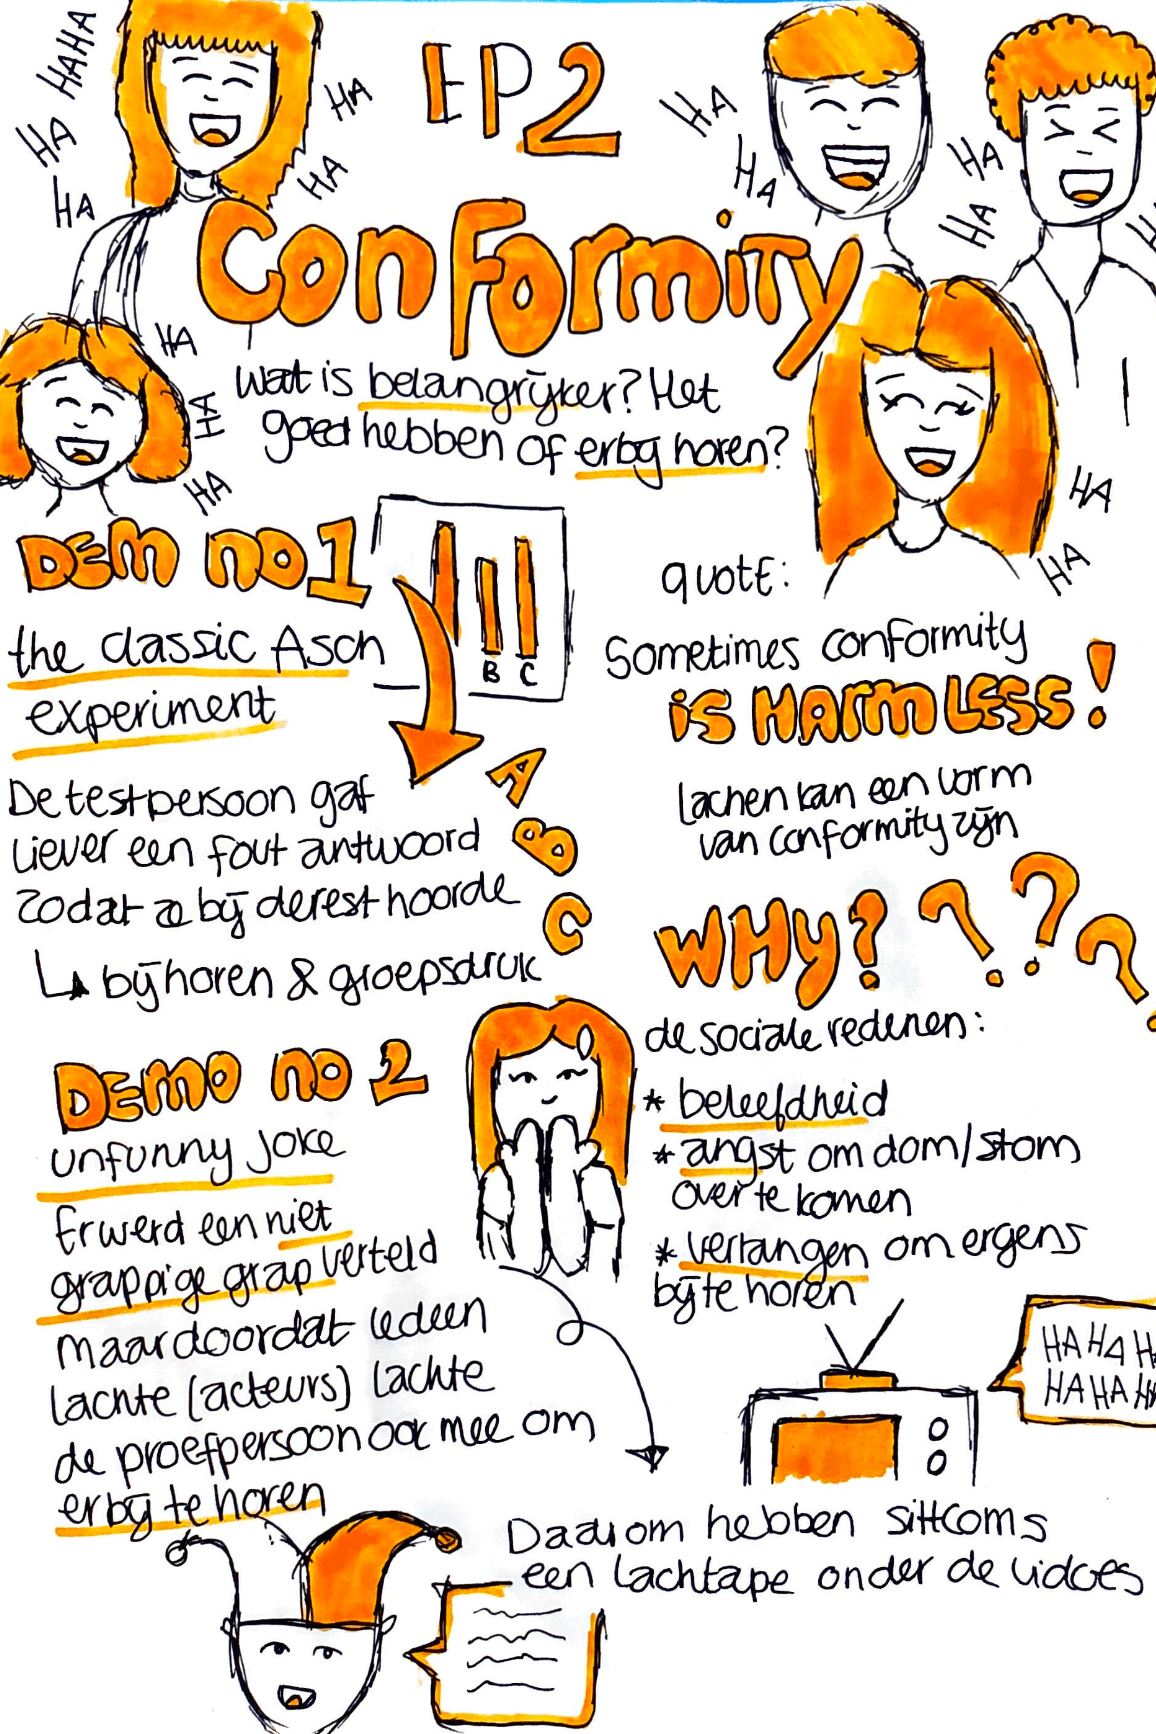 HAHA
HA
HA
HA
HA
EP2
HA
HA
HA
HA
Conformity
HA
HA
HA
wat is belangrijker? Het
goed hebben of erbij horen?
HA
HA
DEM no 1
B C
the classic Asch
experiment
De testpersoon gaf
liever een fout antwoord
zodat ze bij de rest hoorde
bij horen & groepsdruk
A
B
C
quote:
Sometimes conformity
is HARMLESS!
lachen kan een vorm
van conformity zijn
WHY? ? ? ?
de sociale redenen:
* beleefdheid
* angst om dom/stom
over te komen
* verlangen om ergens
bij te horen
DEMO no 2
unfunny joke
Er werd een niet
grappige grap verteld
maar doordat iedeen
lachte (acteurs) lachte
de proefpersoon ook mee om
erbij te horen
HA HA H
HA HA H
Daarom hebben sittcoms
een lachtape onder de vidoes